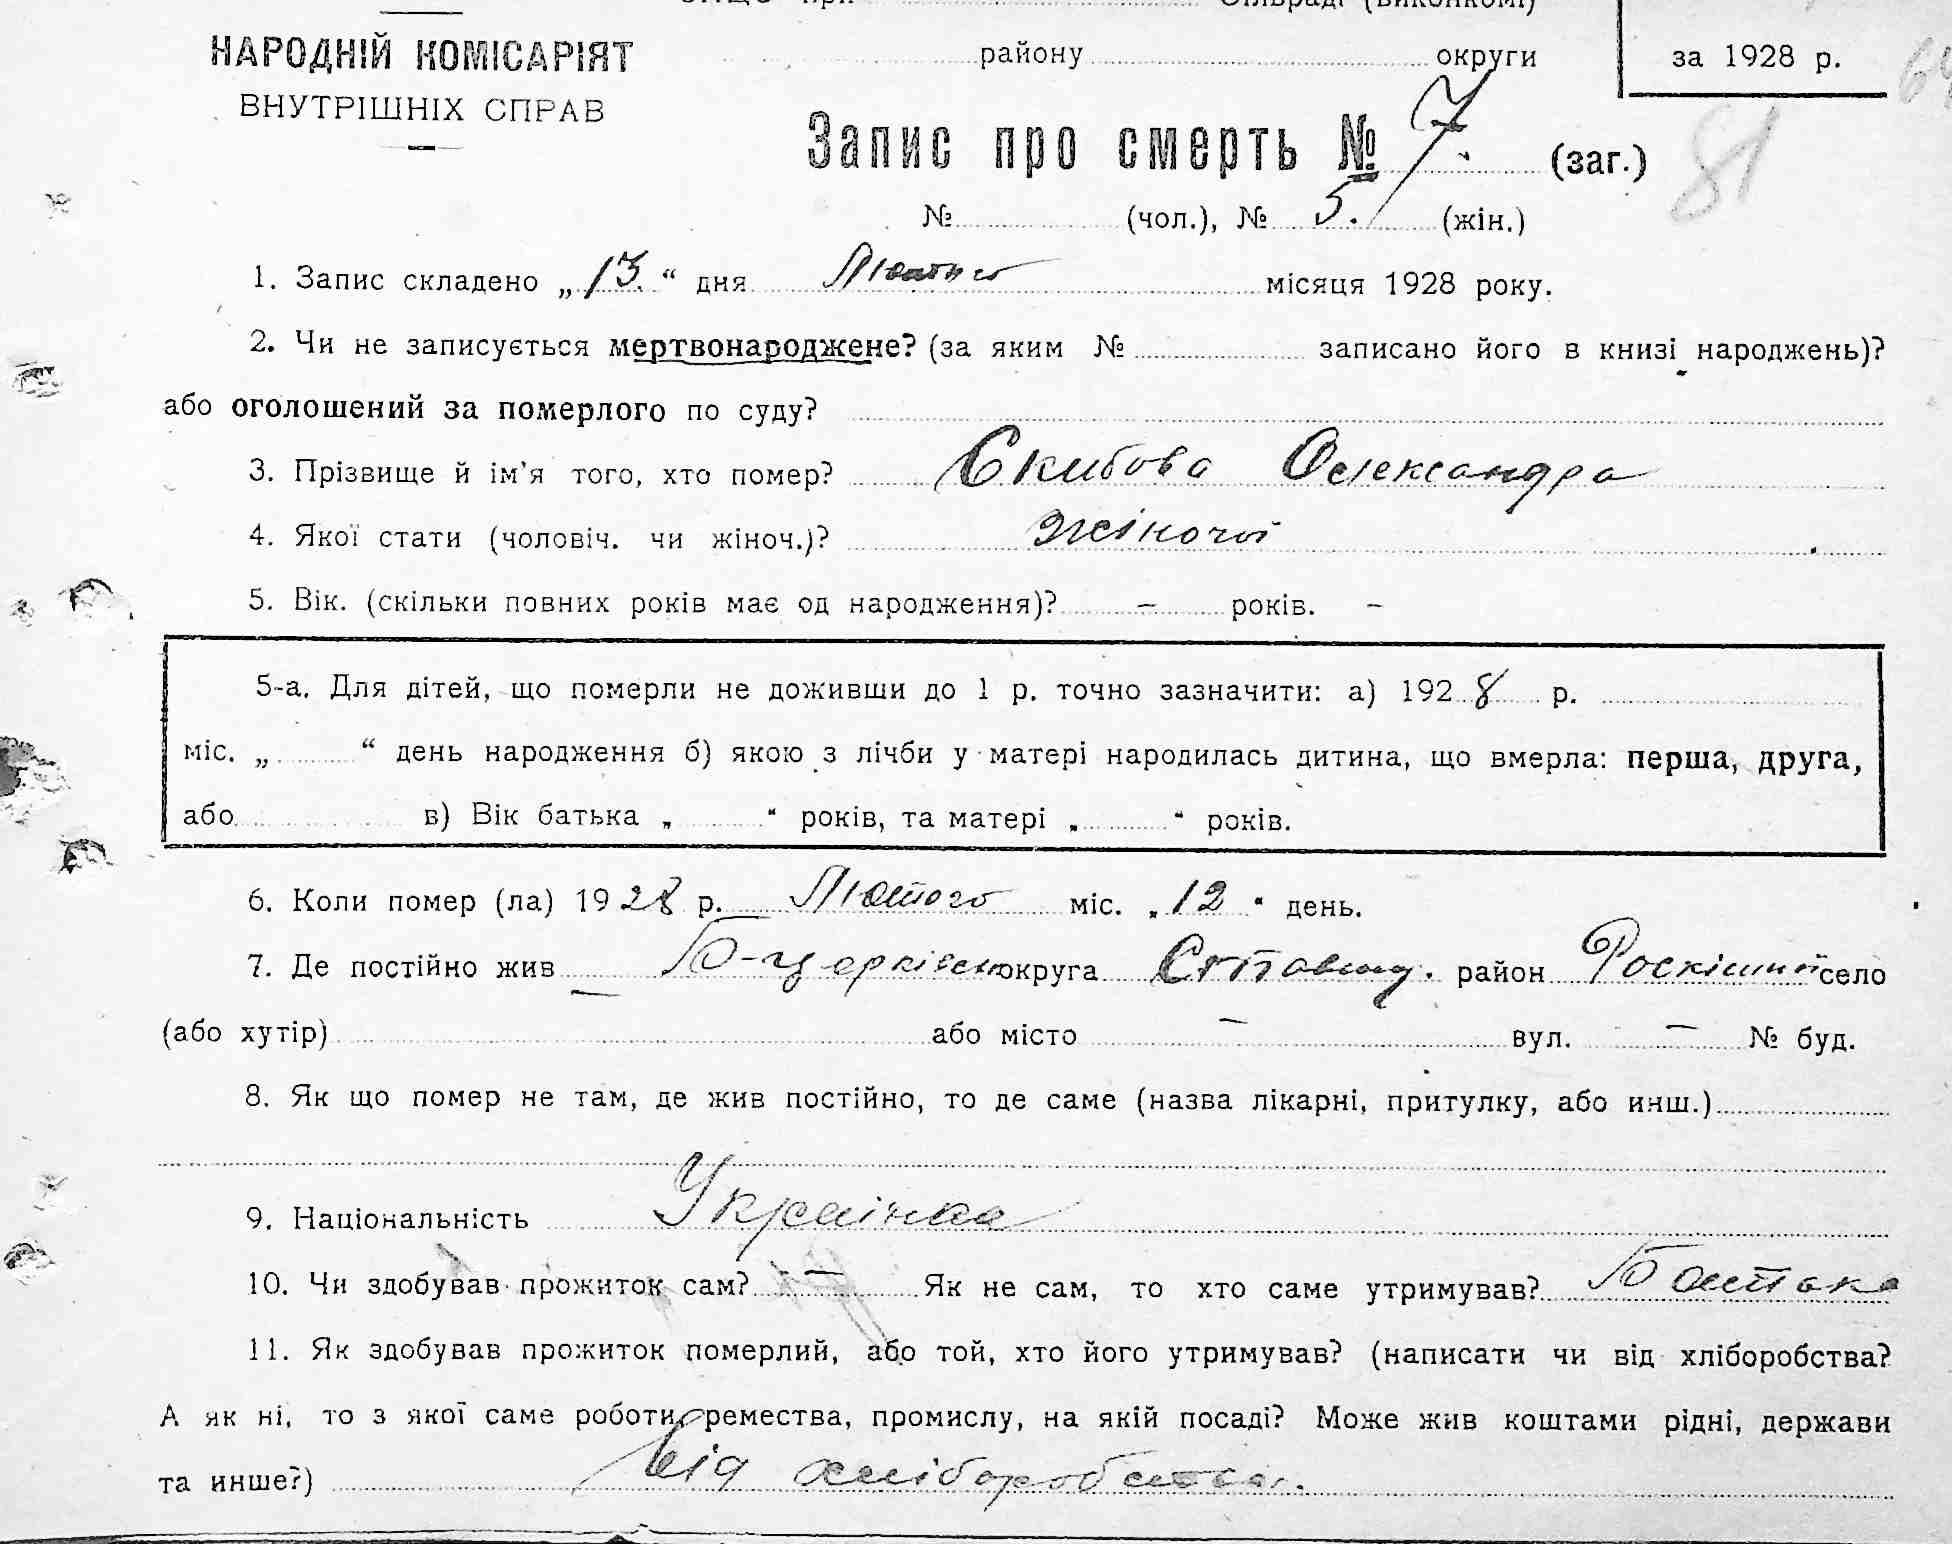 НАРОДНІЙ КОМІСАРІЯТ
ВНУТРІШНІХ СПРАВ
сільраді (виконкомі)
району округи
за 1928 р.
81
Запис про смерть № 7. (заг.)
№ (чол.), № 5. (жін.)
1. Запис складено „13.“ дня Лютого місяця 1928 року.
2. Чи не записується мертвонароджене? (за яким № записано його в книзі народжень)?
або оголошений за померлого по суду?
3. Прізвище й ім’я того, хто помер? Скибова Олександра
4. Якої стати (чоловіч. чи жіноч.)? жіночої
5. Вік. (скільки повних років має од народження)? – років. –
5-а. Для дітей, що померли не доживши до 1 р. точно зазначити: а) 1928 р.
міс. „ “ день народження б) якою з лічби у матері народилась дитина, що вмерла: перша, друга,
або в) Вік батька „ “ років, та матері „ “ років.
6. Коли помер (ла) 1928 р. Лютого міс. „12“ день.
7. Де постійно жив Б-церківськ округа Ставищ. район село
(або хутір) або місто – вул. – № буд.
8. Як що помер не там, де жив постійно, то де саме (назва лікарні, притулку, або инш.)
9. Національність Українка
10. Чи здобував прожиток сам? – Як не сам, то хто саме утримував? Батько
11. Як здобував прожиток померлий, або той, хто його утримував? (написати чи від хліборобства?
А як ні, то з якої саме роботи, ремества, промислу, на якій посаді? Може жив коштами рідні, держави
та инше?) від хліборобства.